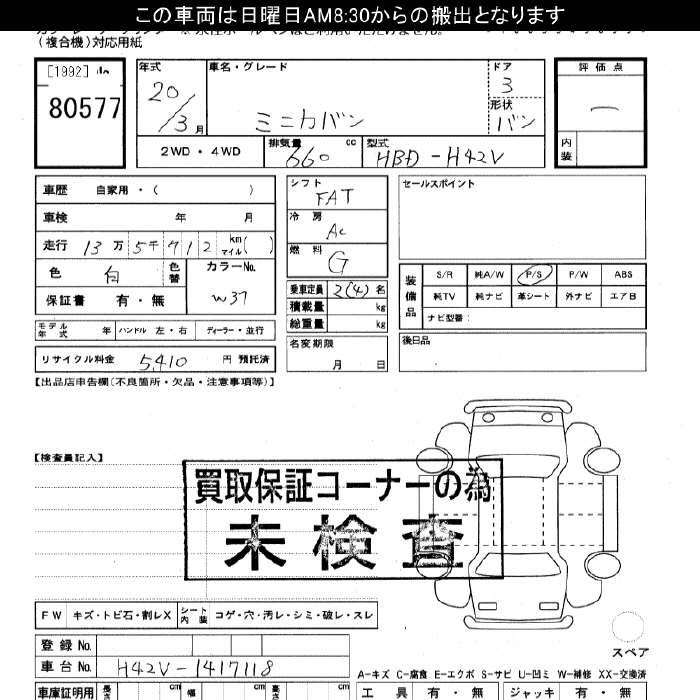 この車両は日曜日AM8:30からの搬出となります
(複合機)対応用紙
[1992]
80577
年式 20/3月
車名・グレード ミニカバン
ドア 3
形状 バン
評価点 —
内装
2WD・4WD
排気量 660 cc
型式 HBD-H42V
車歴 自家用・( )
車検 年 月
走行 13万5千912 km マイル( )
色 白 色替 カラーNo. W37
保証書 有・無
モデル年式 年 ハンドル 左・右 ディーラー・並行
リサイクル料金 5,410 円 預託済
シフト FAT
冷房 AC
燃料 G
乗車定員 2(4)名
積載量 kg
総重量 kg
名変期限 月 日
セールスポイント
装備品 S/R 純A/W P/S P/W ABS
純TV 純ナビ 革シート 外ナビ エアB
ナビ型番:
後日品
【出品店申告欄(不良箇所・欠品・注意事項等)】
【検査員記入】
買取保証コーナーの為
未検査
FW キズ・トビ石・割レX シート内装 コゲ・穴・汚レ・シミ・破レ・スレ
スペア
登録No.
車台No. H42V-1417118
A-キズ C-腐食 E-エクボ S-サビ U-凹ミ W-補修 XX-交換済
車庫証明用 長さ cm 幅 cm 高さ cm
工具 有・無 ジャッキ 有・無